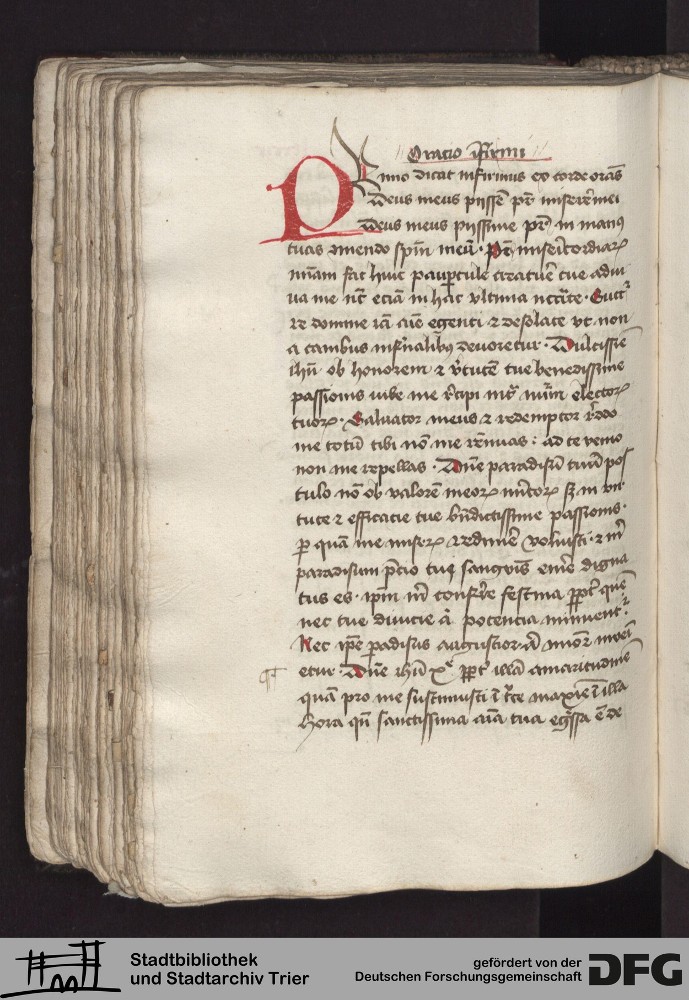 Oratio infirmi
Primo dicat infirmus ex corde orās
Deus meus piissē pr̄ miserēmei
Deus meus piissime pr̄ in manꝰ
tuas ɔmendo spm̄ meū · Pr̄ misericordiaꝝ
mīam fac huic paupercule creature tue adiu
ua me nūc eciā in hac vltima nccītate · Succ
re domine iā aīe egenti ⁊ desolate vt non
a canibus infnalibꝰ deuoretur · Dulcissīe
ihū ob honorem ⁊ v̓tutē tue benedissime
passionis iube me r̓cipi intr̓ nūm̄ electoꝝ
tuoꝝ · Saluator meus ⁊ redemptor r̓ddo
me totū tibi nō me rēnuas : ad te venio
non me repellas · Dn̄e paradisū tuū pos
tulo nō ob valorē meoꝝ m̓itoꝝ sꝫ in vir
tute ⁊ efficacie tue bn̄dictissime passionis ·
ꝑ quā me miseꝝ redimē̓ voluisti · ⁊ m̓
paradisum p̄cio tui sanguīs emē̓ digna
tus es · ipm̄ m̓ conferre festina ꝓpt̓ quē
nec tue diuicie ā potencia minuent̓ :
Nec ip̄e ꝑadisus augustior ā minor inueī
etur · Dn̄e ihū xp̄ ꝓpt̓ illā amaritudinē
quā pro me sustinuisti ī cruce maxīe ī illa
hora qn̄ sanctissima aīa tua egr̄ssa ē de
Stadtbibliothek
und Stadtarchiv Trier
gefördert von der
Deutschen Forschungsgemeinschaft
DFG